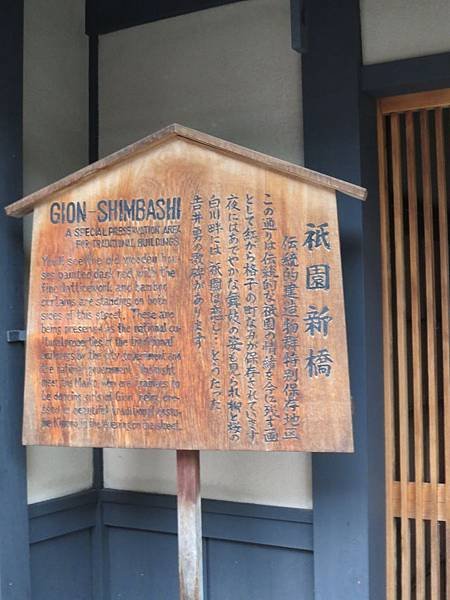 GION-SHIMBASHI
A SPECIAL PRESERVATION AREA
FOR TRADITIONAL BUILDINGS
You'll see the old wooden hou-
ses painted dark red with the
fine latticework and bamboo
curtains are standing on both
sides of this street. These are
being preserved as the national cu-
ltural properties of the traditional
buildings by the city government and
the national government. You might
meet the Maiko, who are trainees to
be dancing girls of Gion, being dre-
ssed in beautiful traditional costu-
me Kimono, in the evening on the street.
祇園新橋
伝統的建造物群特別保存地区
この通りは伝統的な祇園の情緒を今に残す一画
として紅がら格子の町なみが保存されています
夜にはあでやかな舞妓の姿も見られ柳と桜の
白川畔には〝祇園は恋し…〟とうたった
吉井勇の歌碑があります。